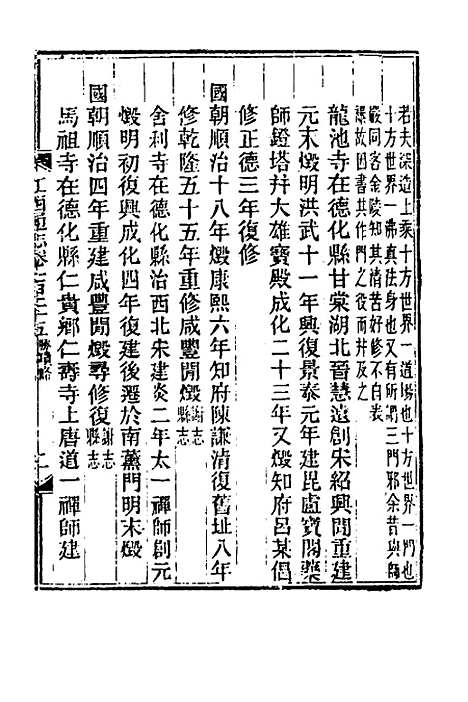 若夫深造上乘十方世界一道場也十方世界一門也
十方世界一佛真法身也又有所謂三門邪余昔與師
嚴同客金陵知其精苦好修不自表
襮故因書其作門之役而并及之
龍池寺在德化縣甘棠湖北晉慧遠創宋紹興間重建
元末燬明洪武十一年興復景泰元年建毘盧寶閣藥
師鐙塔幷大雄寶殿成化二十三年又燬知府呂某倡
修正德三年復修
國朝順治十八年燬康熙六年知府陳謙清復舊址八年
修乾隆五十五年重修咸豐間燬謝志縣志
舍利寺在德化縣治西北宋建炎二年太一禪師創元
燬明初復興成化四年復建後遷於南薰門明末燬
國朝順治四年重建咸豐間燬尋修復謝志縣志
馬祖寺在德化縣仁貴鄉仁壽寺上唐道一禪師建
江西通志卷一百二十五勝蹟略